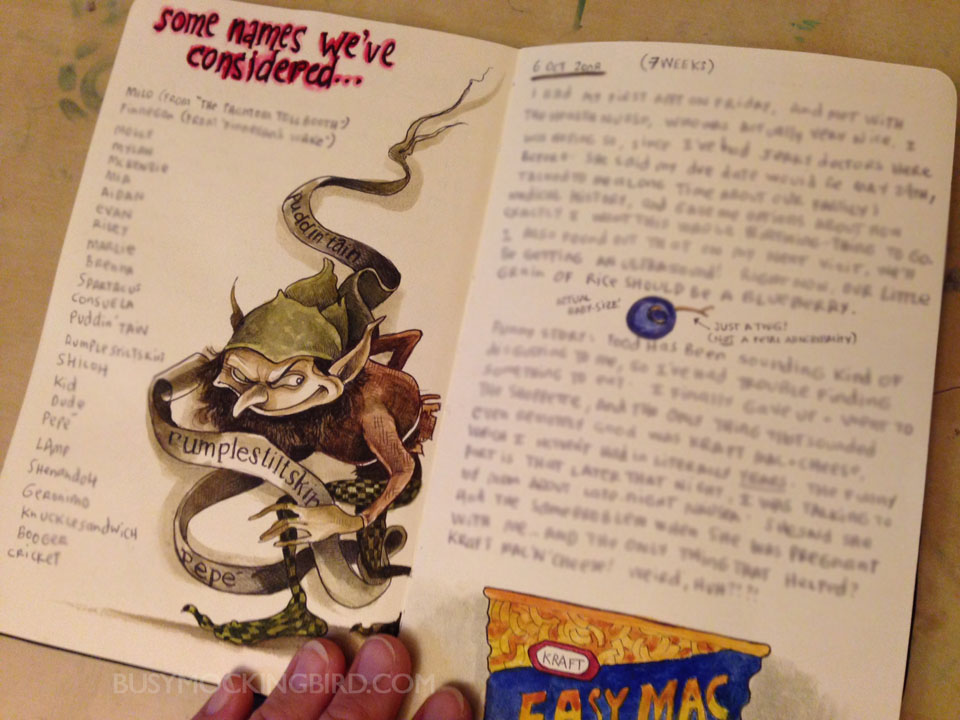 some names we've
considered...
Milo (from "The Phantom Tollbooth")
Finnegan (from "Finnegan's Wake")
Molly
Mylah
McKenzie
Mia
Aidan
Evan
Riley
Marlie
Brenna
Spartacus
Consuela
Puddin' Tain
Rumplestiltskin
Shiloh
Kid
Dude
Pepé
Lamp
Shenandoah
Geronimo
Knucklesandwich
Booger
Cricket
puddin' tain
rumplestiltskin
pepé
6 Oct 2008 (7 weeks)
I had my first appt on Friday, and met with
the nurse, who was actually very nice. I
was so, since I've had jerks doctors here
before. She said my due date would be May 24th,
talked to me a long time about our family's
medical history, and gave me options about how
exactly I want this whole birthing-thing to go.
I also found out that on my next visit, we'll
be getting an ultrasound! Right now, our little
grain of rice should be a blueberry.
actual
baby-size!
just a twig!
(not a fetal abnormality)
Funny story: Food has been sounding kind of
disgusting to me, so I've had trouble finding
something to eat. I finally gave up & went to
the , and the only thing that sounded
even remotely good was Kraft mac & cheese,
which I haven't had in literally years. The funny
part is that later that night, I was talking to
my mom about and she said she
had the same problem when she was pregnant
with me... and the only thing that helped?
Kraft mac 'n' cheese! Weird, huh?!?!
KRAFT
EASY MAC
BUSYMOCKINGBIRD.COM